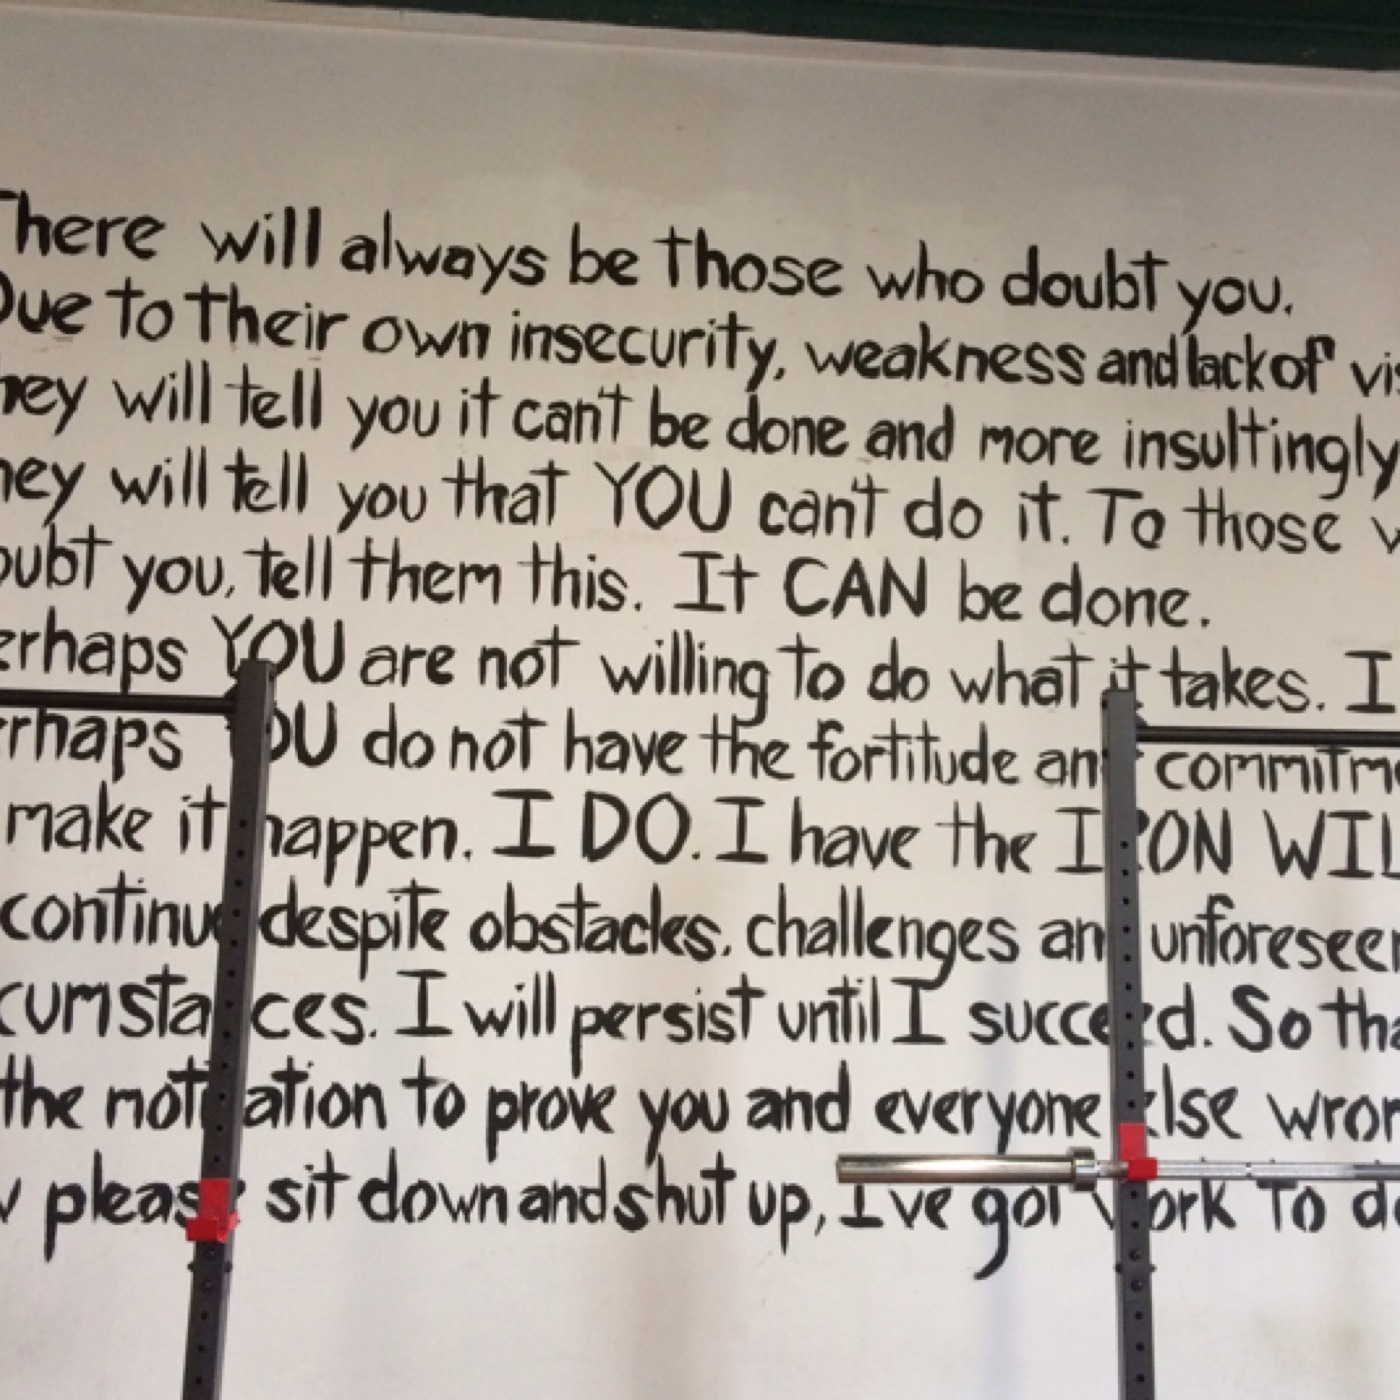 There will always be those who doubt you.
Due to their own insecurity, weakness and lack of
they will tell you it can't be done and more insultingly
they will tell you that YOU can't do it. To those
doubt you, tell them this. It CAN be done.
erhaps YOU are not willing to do what it takes. I
erhaps YOU do not have the fortitude and commitme
make it happen. I DO. I have the IRON WIL
continue despite obstacles, challenges and unforeseen
cumstances. I will persist until I succeed. So tha
the motivation to prove you and everyone else wron
please sit down and shut up, I've got work to do